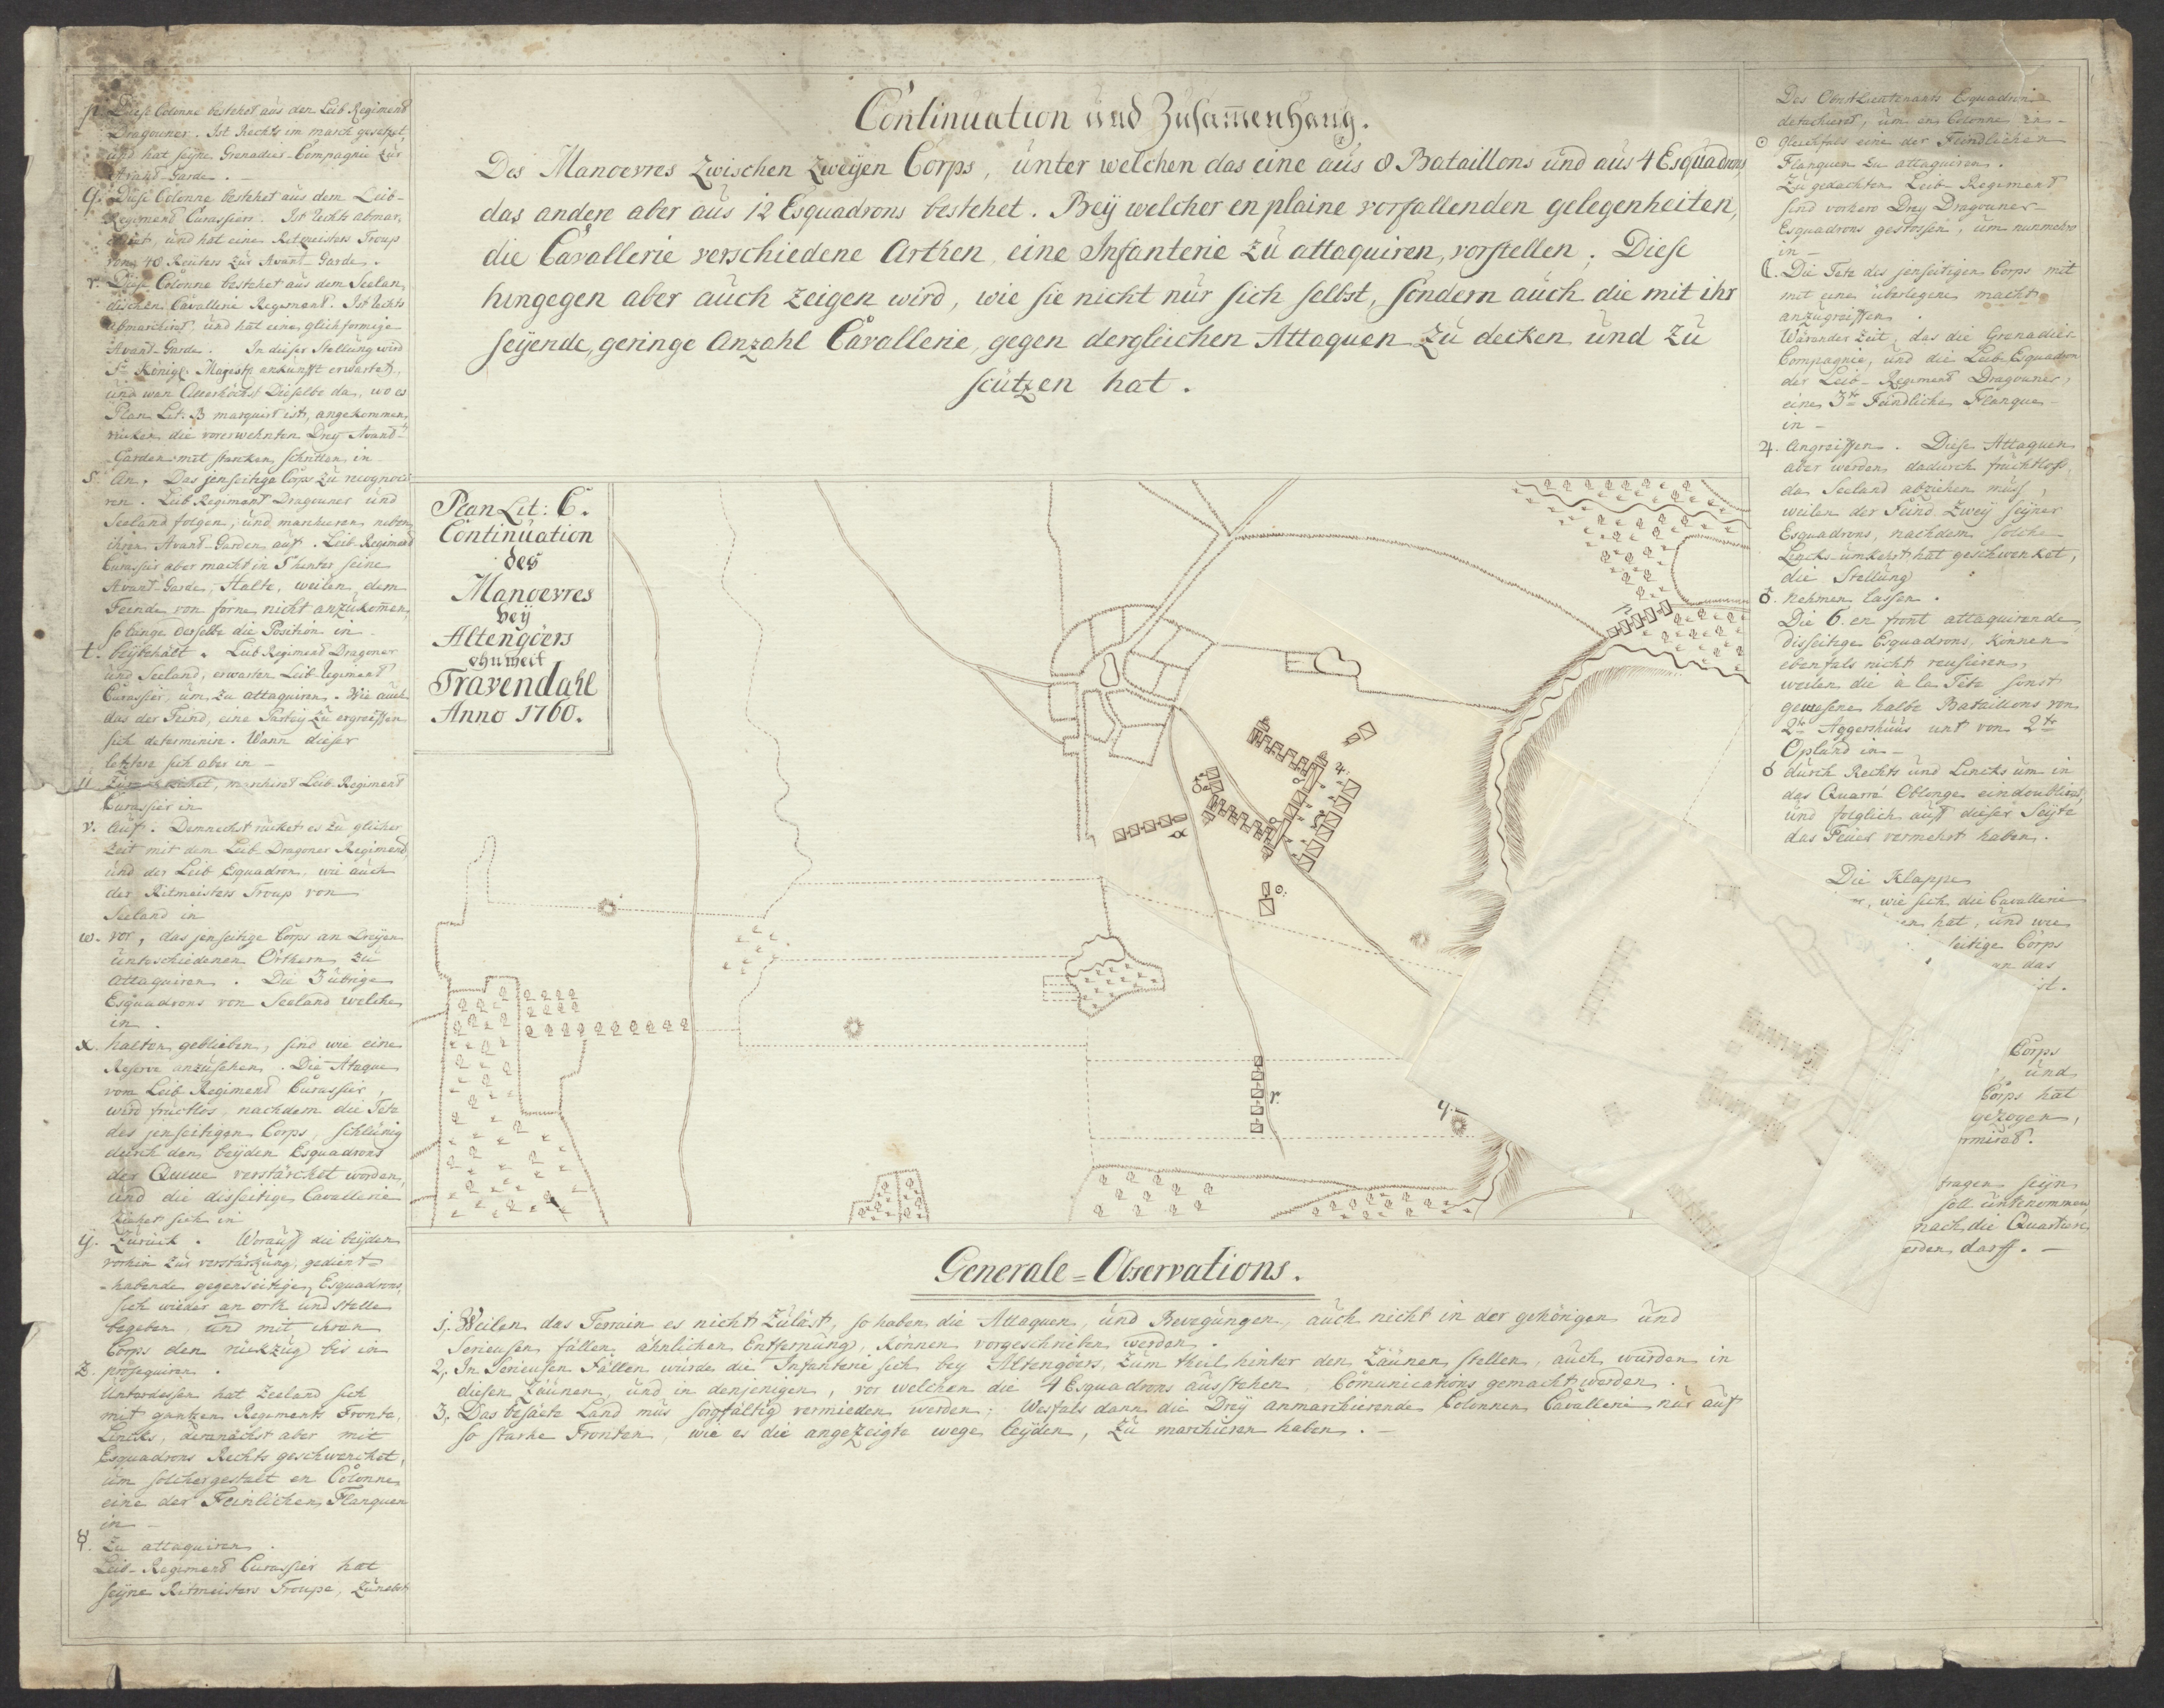 Continuation und Zusammenhang.
Des Manoevres zwischen zweyen Corps, unter welchen das eine aus 8 Bataillons und aus 4 Esquadrons
das andere aber aus 12 Esquadrons bestehet. Bey welcher en plaine vorfallenden gelegenheiten,
die Cavallerie verschiedene Arthen, eine Infanterie zu attaquiren, vorstellen; Diese
hingegen aber auch zeigen wird, wie sie nicht nur sich selbst, sondern auch die mit ihr
seyende, geringe Anzahl Cavallerie, gegen dergleichen Attaquen zu decken und zu
scützen hat.
p. Diese Colonne bestehet aus den Leib Regimend
Dragouner. Ist Rechts im march gesetzet
und hat seyne Grenadier-Compagnie zur
Avant-Garde.
q. Diese Colonne bestehet aus dem Leib-
Regimend Curassiers. Ist Rechts abmar,
chiret, und hat eine Ritmeisters Troup
von 40 Reuters zur Avant-Garde.
r. Diese Colonne bestehet aus dem Seelan,
dischen Cavallerie Regimend. Ist Rechts
abmarchiret, und hat eine glichformige
Avant-Garde. In dieser Stellung wird
Sr Königl. Majestz ankunfft erwartet,
und wan Allerhöchst Dieselbe da, wo es
Plan Lit: B marquirt ist, angekommen,
rücken die vorerwehnten Drey Avand-
Garden mit starcken schritten in
s. An, Das jenseitige Corps zu recognosci
ren. Leib Regiment Dragouner und
Seeland folgen, und marchieren neben
ihren Avant-Garden auf. Leib-Regimend
Curassir aber macht in T hinter seine
Avant-Garde, Halte, weilen dem
Feinde von forne nicht anzukommen,
so lange derselbe die Position in
t. beybehält. Leib Regimend Dragoner
und Seeland, erwarten Leib Regimend
Curassier, um zu attaquiren. Wie auch
das der Feind, eine Partey zu ergreiffen
sich determinire. Wann dieser
letztere sich aber in –
u. Zurückziehet, marchirt Leib Regimend
Curassier in
v. Auf. Demnechst rücket es zu glicher
Zeit mit dem Leib-Dragoner Regimend
und der Leib Esquadron, wie auch
der Ritmeisters Troup von
Seeland in
w. vor, das jenseitige Corps an Dreyen
unterschiedenen Örthern zu
attaquiren. Die 3 übrige
Esquadrons von Seeland welche
in
x. halten geblieben, sind wie eine
Reserve anzusehen. Die Ataque
vom Leib Regimend Curassier,
wird fructlos, nachdem die Tete
des jenseitigen Corps, schleunig
durch den beyden Esquadrons
der Queue verstärcket worden,
und die disseitige Cavallerie
ziehet sich in
y. Zurück. Worauff die beyden
vorhin zur verstärckung gedient
habende gegenseitige Esquadrons,
sich wieder an orth und stelle
begeben, und mit ihren
Corps den rückzug bis in
z. prosequiren.
Unterdessen hat Zeeland sich
mit gantzen Regiments Fronte,
Lincks, demnächst aber mit
Esquadrons Rechts geschwencket,
um solchergestalt en Colonne,
eine der Feinlichen Flanquen
in –
☿. Zu attaquiren.
Leib-Regimend Curassier hat
seyne Ritmeisters Troupe,
Plan Lit: C.
Continuation
des
Manoevres
bey
Altengöers
ohnweit
Travendahl
Anno 1760.
♃.
♂
α
o.
r.
q.
Des Obrstlieutenants Esquadron
detachieret, um en Colonne in –
☉ gleichfals eine der Feindlichen
Flanquen zu attaquiren.
Zu gedachten Leib-Regimend
sind vorhero Drey Dragouner-
Esquadrons gestossen, um nunmehro
in –
☾. Die Tete des jenseitigen Corps mit
mit eine überlegene macht
anzugreiffen.
Wärender Zeit, das die Grenadier-
Compagnie, und die Leib-Esquadron
der Leib-Regimend Dragouner,
eine 3te Feindliche Flanque
in –
♃. Angreiffen. Diese Attaquen
aber werden dadurch fruchtloss,
da Seeland abziehen muss,
weilen der Feind zwey seyner
Esquadrons, nachdem solche
Lincks umkehrt hat geschwenket,
die Stellung
♂. Nehmen lassen.
Die 6. en front attaquirende,
disseitige Esquadrons, können
ebenfals nicht reussieren,
weilen die à la Tête sonst
gewesene halbe Bataillons von
2te Aggershuus unt von 2te
Opland in –
♁ durch Rechts und Lincks um in
das Quarré Oblonge eindoubliret,
und folglich auff dieser Seyte
das Feuer vermehrt haben.
Die Klappe
wie sich die Cavallerie
hat, und wie
seitige Corps
an das
ist.
Corps
und
Corps hat
gezogen,
rmiret.
tragen seyn
soll unternommen
nach die Quartiere
erden darff.
Generale=Observations.
1, Weilen das Terrain es nicht zuläst, so haben die Attaquen, und Bewegungen, auch nicht in der gehörigen und
serieusen fällen ähnlichen Entfernung, können vorgeschrieben werden.
2, In Serieusen Fällen würde die Infanterie sich bey Altengöers, zum theil hinter den Zäunen stellen, auch würden in
diesen Zäunen, und in denjenigen, vor welchen die 4 Esquadrons ausstehen, Comunications gemacht werden.
3, Das besäete Land mus sorgfältig vermieden werden; Wesfals dann die Drey anmarchierende Colonnen Cavallerie nur auf
so starke Fronten, wie es die angezeigte wege leyden, zu marchieren haben.